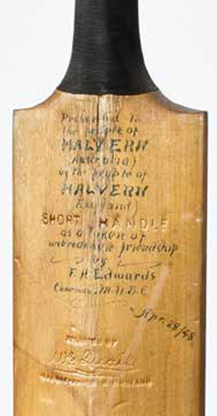 Presented to
the people of
MALVERN
(Australia)
by the people of
MALVERN
England)
SHORT HANDLE
as a token of
unbreakable friendship
by
F. H. Edwards
Chairman. M.U.D.C
Apr. 28/48
SELECTED BY
ENGLAND